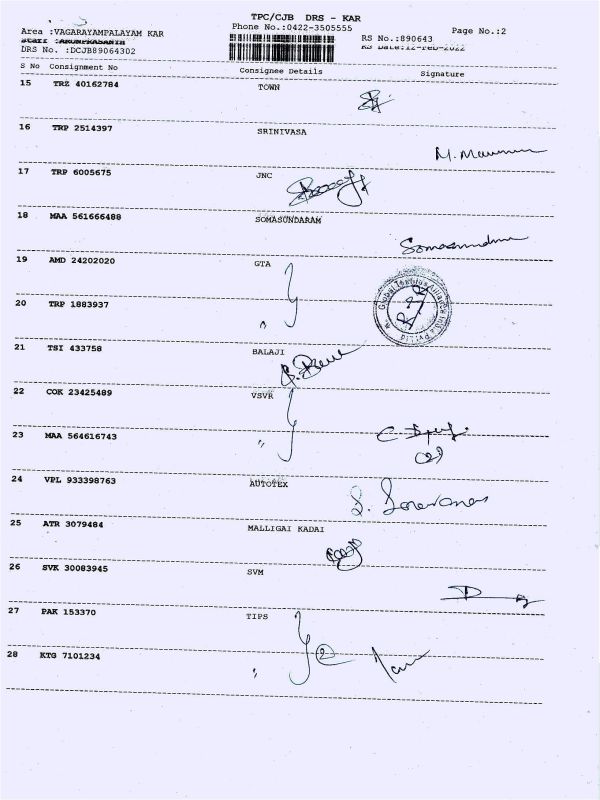 TPC/CJB DRS - KAR
Area :VAGARAYAMPALAYAM KAR Phone No.:0422-3505555 RS No.:890643 Page No.:2
Staff :ARUNPRASANTH RS Date:12-Feb-2022
DRS No. :DCJB89064302
S No Consignment No Consignee Details Signature
15 TRZ 40162784 TOWN
16 TRP 2514397 SRINIVASA
17 TRP 6005675 JNC
18 MAA 561666488 SOMASUNDARAM
Somasundram
19 AMD 24202020 GTA
20 TRP 1883937 "
21 TSI 433758 BALAJI
22 COK 23425489 VSVR
23 MAA 564616743 "
24 VPL 933398763 AUTOTEX
S. Saravanan
25 ATR 3079484 MALLIGAI KADAI
26 SVK 30083945 SVM
27 PAK 153370 TIPS
2
28 KTG 7101234 "